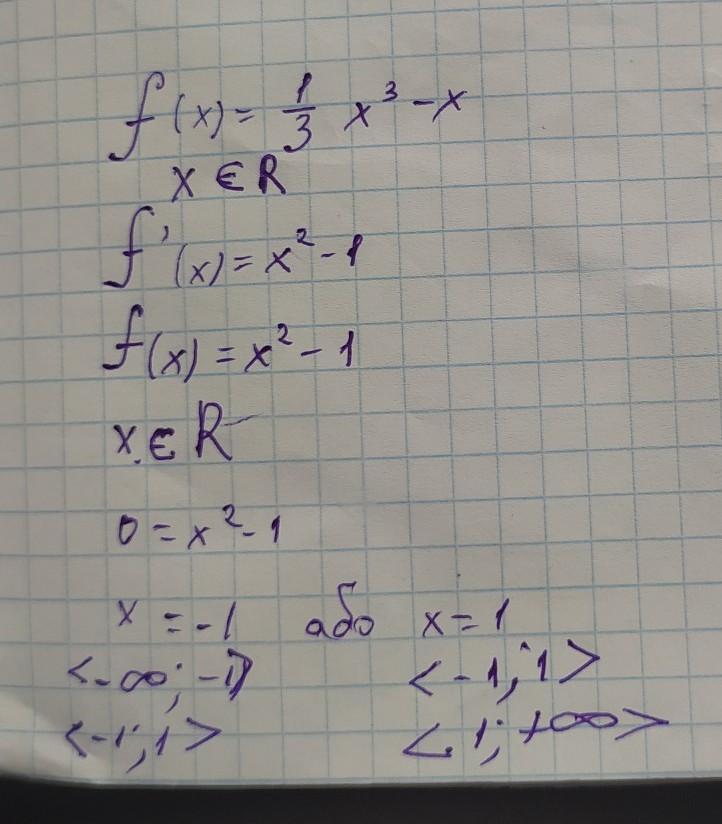 f(x) = 1/3 x³ - x
x ∈ R
f'(x) = x² - 1
f(x) = x² - 1
x ∈ R
0 = x² - 1
x = -1 або x = 1
<-∞; -1) <-1; 1>
<-1; 1> <1; +∞>